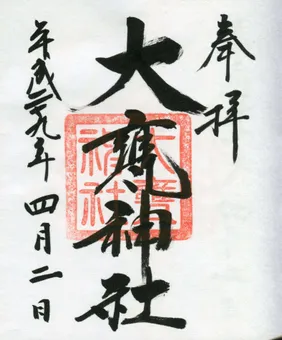 奉拝
大甕神社
平成二十九年四月二日
大甕
神社